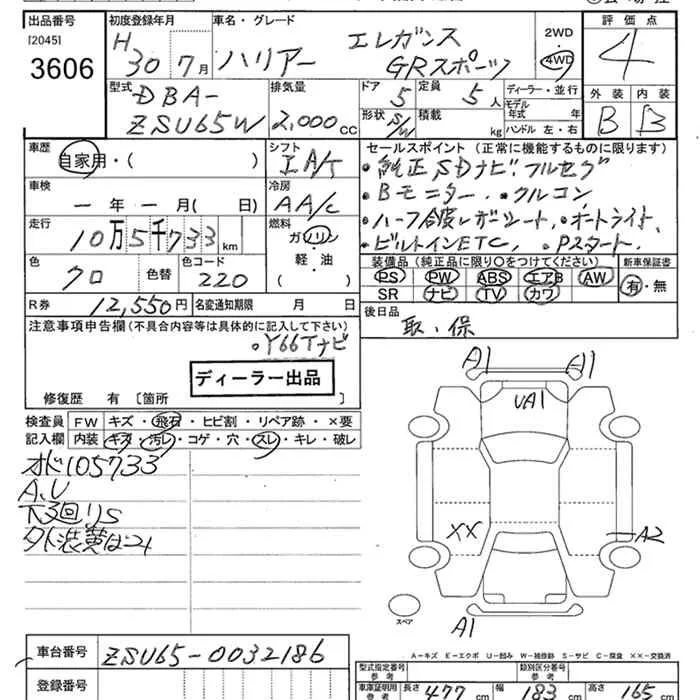 出品番号 初度登録年月 車名・グレード 評価点
[2045] H エレガンス 2WD
3606 30 7月 ハリアー GRスポーツ 4WD 4
型式 排気量 ドア 定員 ディーラー・並行 外装 内装
DBA- 5 5人 モデル年式 年
ZSU65W 2,000cc 形状 S/W 積載 kg ハンドル 左・右 B B
車歴 シフト セールスポイント (正常に機能するものに限ります)
自家用・( ) IA/T ・純正SDナビ フルセグ
車検 冷房 ・Bモニター ・クルコン
ー年ー月( 日) AA/C ・ハーフ合皮レザーシート、・オートライト、
走行 燃料 ・ビルトインETC、 ・Pスタート
10万5千733km ガソリン
軽・油
( )
色 色替 色コード 装備品(純正品に限り○をつけてください) 新車保証書
クロ 220 PS PW ABS エアB AW 有・無
SR ナビ TV カワ
R券 12,550円 名変通知期限 月 日 後日品
注意事項申告欄(不具合内容等は具体的に記入して下さい) 取、保
。Y66Tナビ
ディーラー出品
修復歴 有 [箇所
A1 A1
UA1
検査員 FW キズ・飛石・ヒビ割・リペア跡・×要
記入欄 内装 キズ・汚レ・コゲ・穴・スレ・キレ・破レ
オド105733
A,U
下廻りS
XX A2
スペア
A1
A-キズ E-エクボ U-凹み W-補修跡 S-サビ C-腐食 XX-交換済
車台番号 ZSU65-0032186
登録番号
型式指定番号 参考 類別区分番号 参考
車庫証明用 参考 長さ 477cm 幅 183cm 高さ 165cm